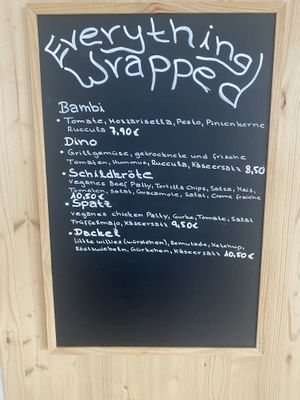 Everything
Wrapped
Bambi
• Tomate, Mozzarisella, Pesto, Pinienkerne
Ruccula 7,90€
Dino
• Grillgemüse, getrocknete und frische
Tomaten, Hummus, Ruccula, Käseersatz 8,50
• Schildkröte
veganes Beef Patty, Tortilla Chips, Salsa, Mais,
Tomaten, Salat, Guacamole, Salat, Creme fraiche
10,50€
• Spatz
veganes chicken Patty, Gurke, Tomate, Salat
Trüffelmajo, Käseersatz 9,50€
• Dackel
little willies (würstchen), Remulade, Ketchup,
Röstzwiebeln, Gürkchen, Käseersatz 10,50€